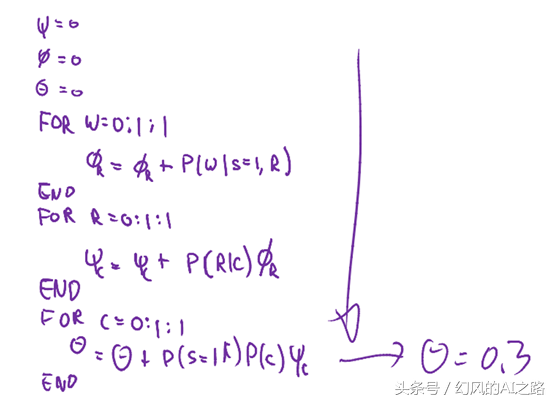 ψ=0
φ=0
θ=0
FOR W=0:1:1
φ_R = φ_R + P(W|S=1,R)
END
FOR R=0:1:1
ψ_C = ψ_C + P(R|C)φ_R
END
FOR C=0:1:1
θ = θ + P(S=1|C)P(C)ψ_C → θ=0.3
END
头条号 / 幻风的AI之路